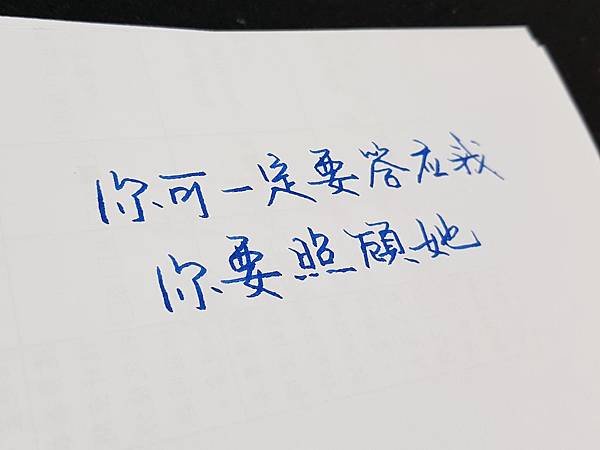 你可一定要答应我
你要照顾她